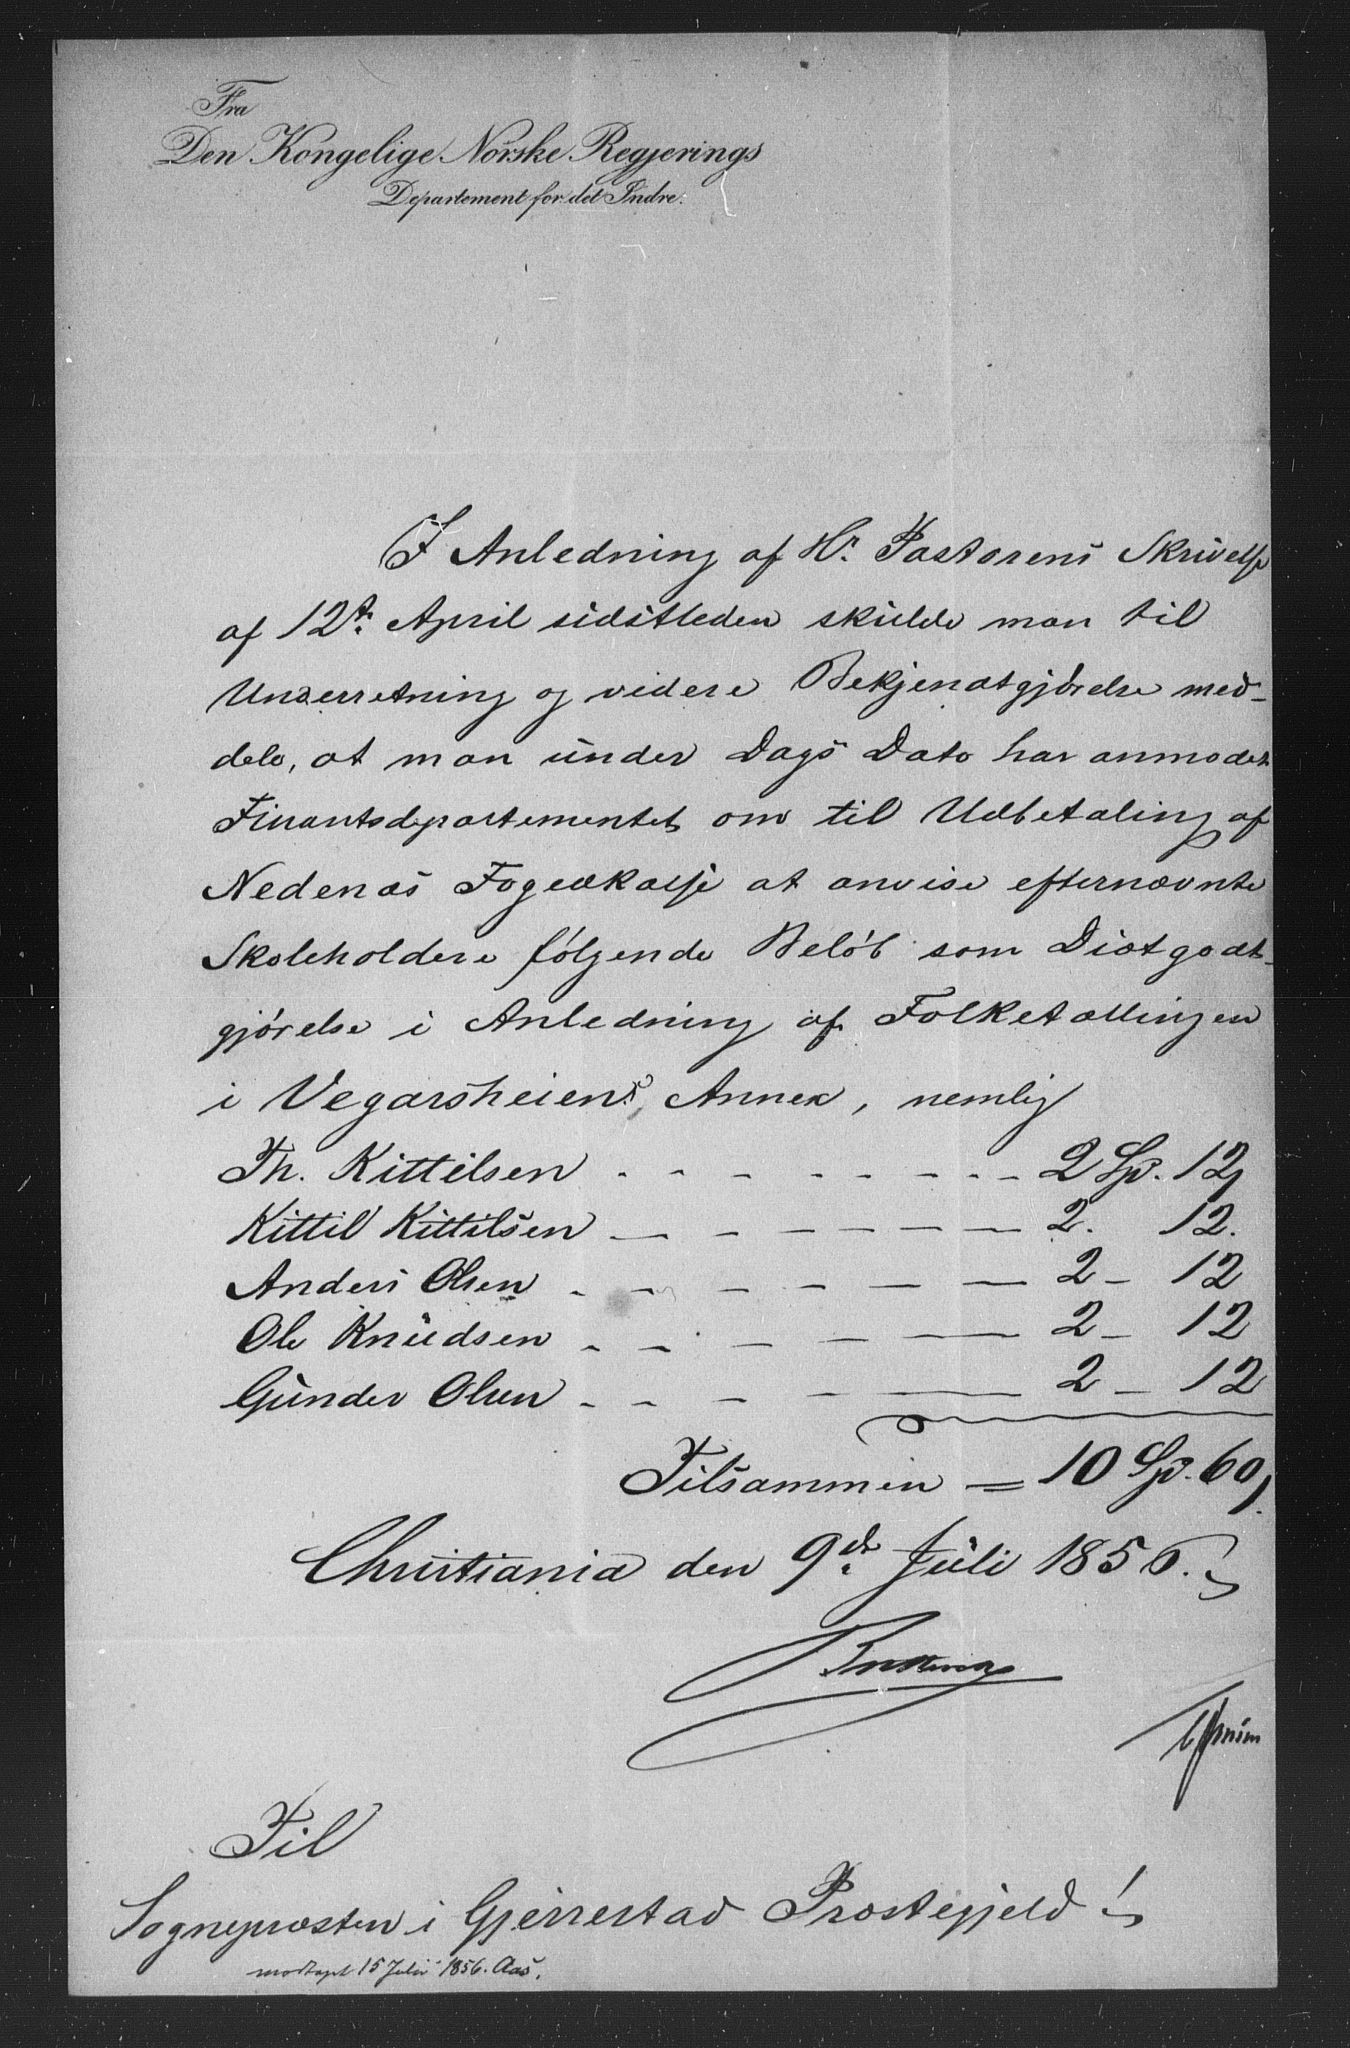 Fra
Den Kongelige Norske Regjerings
Departement for det Indre.
I Anledning af Hr. Pastorens Skrivelse
af 12te April sidstleden skulde man til
Underretning og videre Bekjendtgjørelse med-
dele, at man under Dags Dato har anmodet
Finantsdepartementet om til Udbetaling af
Nedenæs Fogedkasse at anvise efternævnte
Skoleholdere følgende Beløb som Diætgodt-
gjørelse i Anledning af Folketællingen
i Vegarsheiens Annex, nemlig
Th. Kittilsen - - - - - - - - 2 Sp. 12,
Kittil Kittilsen - - - - - - 2. 12.
Anders Olsen - - - - - - 2 - 12
Ole Knudsen - - - - - 2 - 12
Gunder Olsen - - - - - 2 - 12
Tilsammen = 10 Sp. 60,
Christiania den 9de Juli 1856.
Til
Sognepræsten i Gjerrestad Præstegjeld
modtaget 15 Julii 1856. Aas.